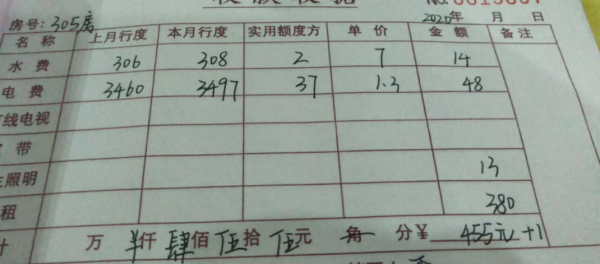 收款收据 No.
房号: 305房 2020年 月 日
名 称 上月行度 本月行度 实用额度方 单 价 金 额 备 注
水 费 306 308 2 7 14
电 费 3460 3497 37 1.3 48
线电视
带
照明 13
租 380
计 万 仟 肆佰 伍拾 伍元 角 分¥ 455元+1